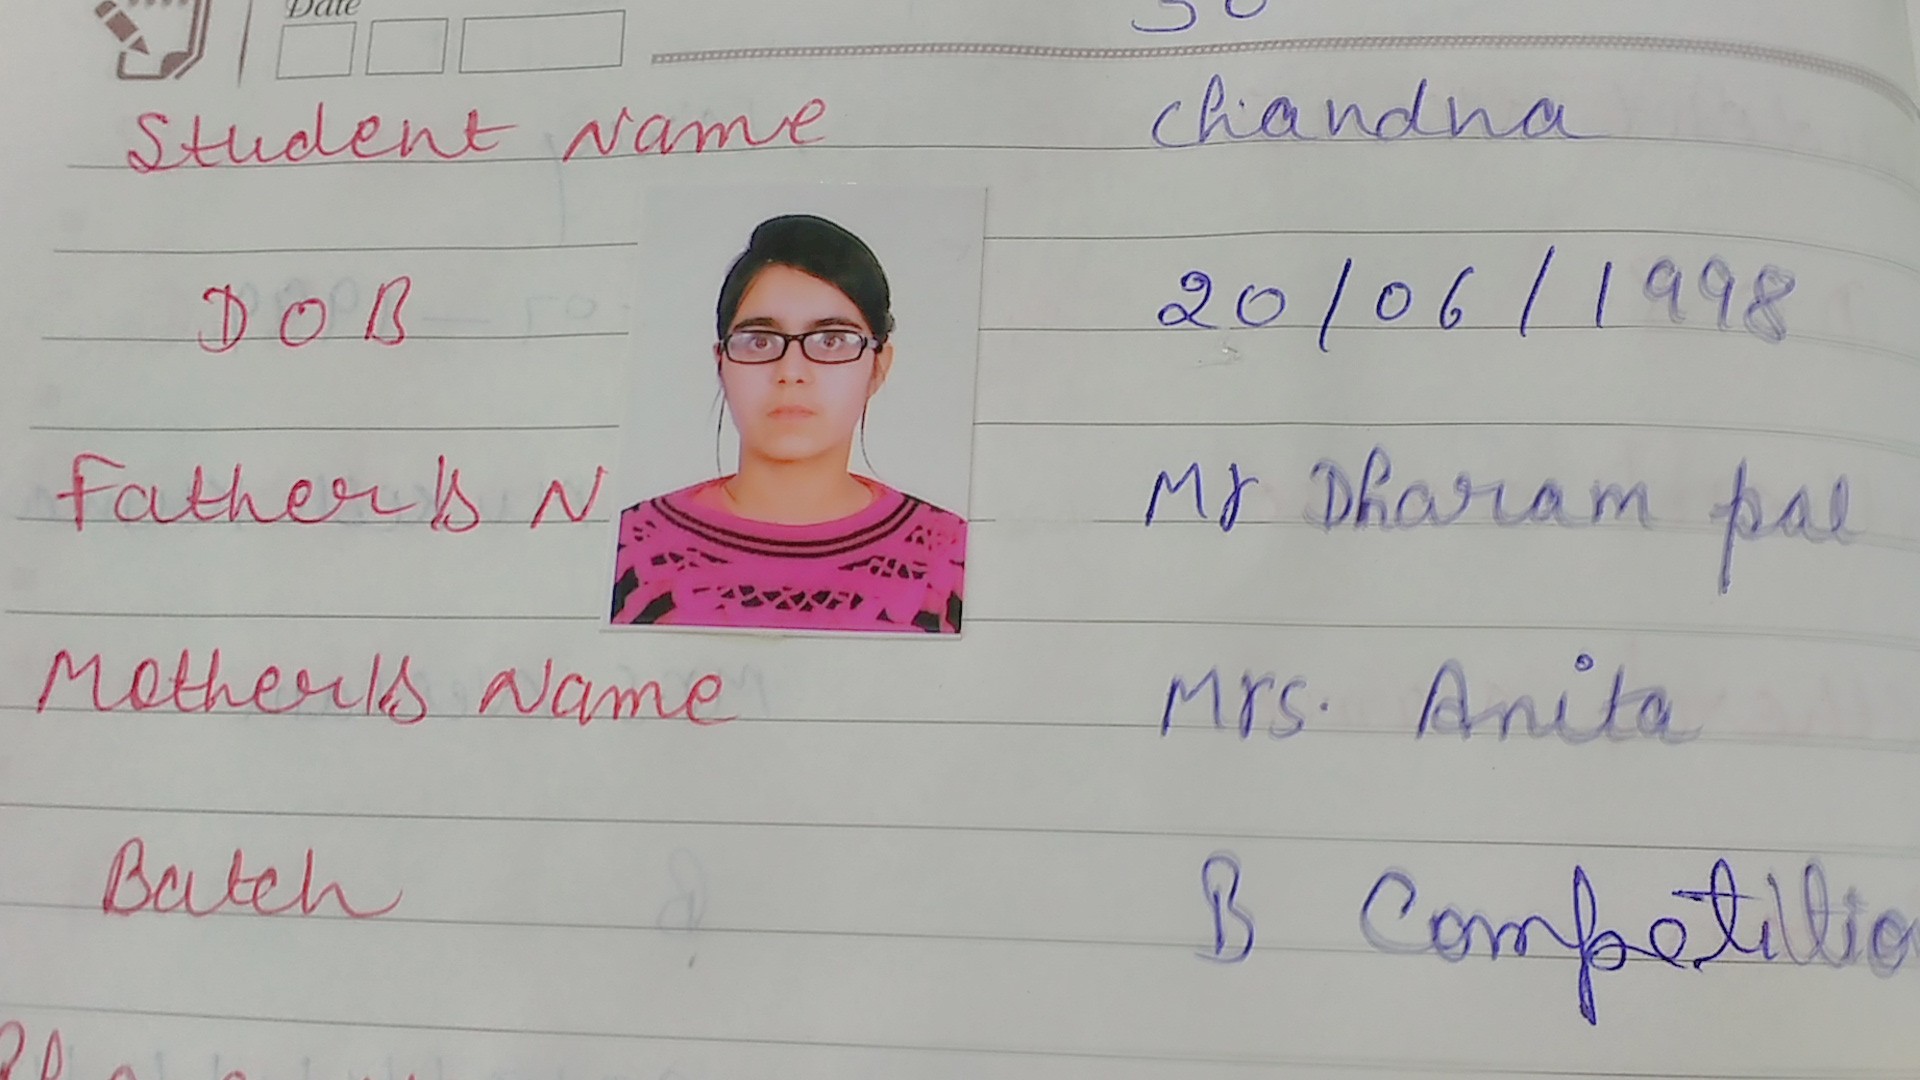 Date
Student Name Chandna
DOB 20/06/1998
Father's N Mr Dharam pal
Mother's Name Mrs. Anita
Batch B Competitio